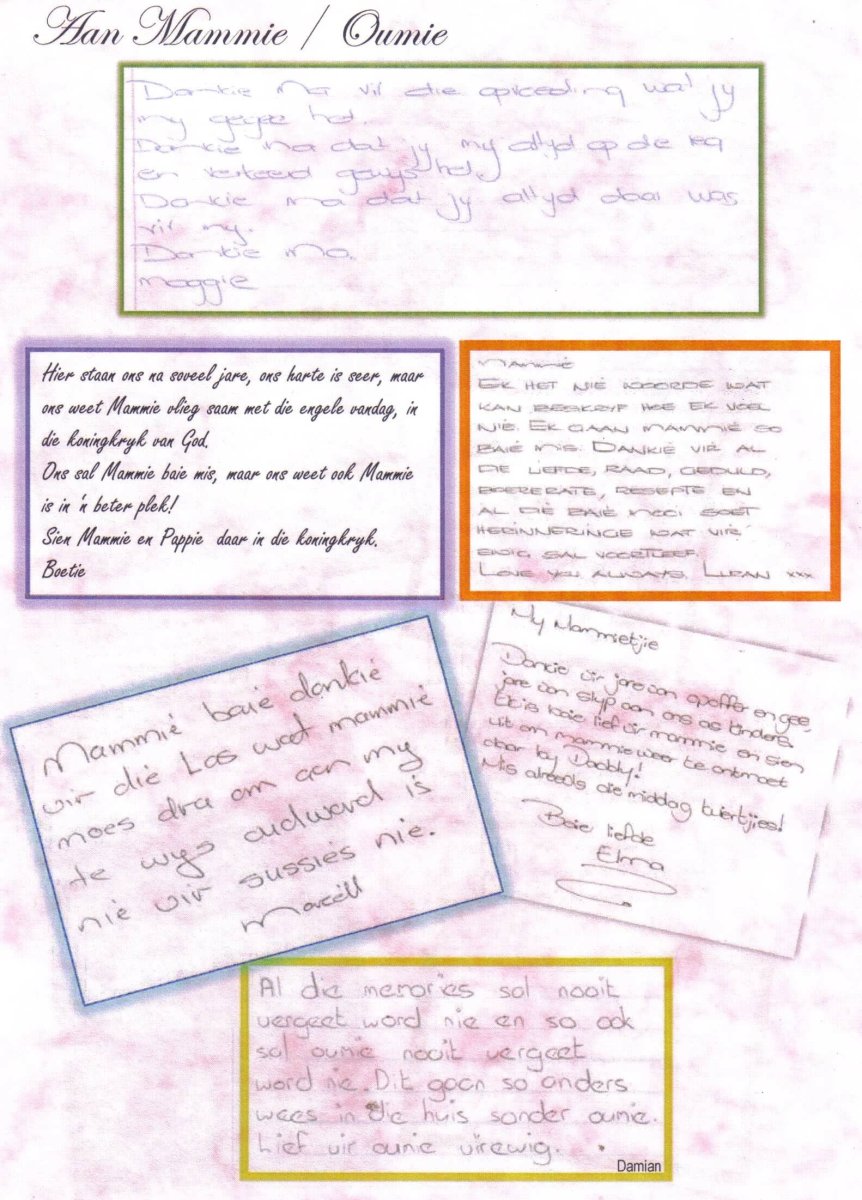 Aan Mammie / Oumie
Dankie Ma vir die opvoeding wat jy
my gegee het.
Dankie ma dat jy my altyd op de reg
en verkeerd gewys het.
Dankie ma dat jy altyd daar was
vir my.
Dankie Ma.
Maggie
Hier staan ons na soveel jare, ons harte is seer, maar
ons weet Mammie vlieg saam met die engele vandag, in
die koningkryk van God.
Ons sal Mammie baie mis, maar ons weet ook Mammie
is in 'n beter plek!
Sien Mammie en Pappie daar in die koningkryk.
Boetie
MAMMIE
EK HET NIE WOORDE WAT
KAN BESKRYF HOE EK VOEL
NIE. EK GAAN MAMMIE SO
BAIE MIS. DANKIE VIR AL
DIE LIEFDE, RAAD, GEDULD,
BOERERATE, RESEPTE EN
AL DIE BAIE MOOI SOET
HERINNERINGE WAT VIR
EWIG SAL VOORTLEEF.
LOVE YOU ALWAYS, xxx
My Mammietjie
Dankie vir jare van opoffer en gee,
jare van slyp aan ons as kinders.
Ek is baie lief vir mammie en sien
uit om mammie weer te ontmoet
daar by Daddy!
Mis alreeds die middag
Baie liefde
Elma
Mammie baie dankie
vir die Las wat mammie
moes dra om aan my
te wys oudword is
nie vir sussies nie.
Marcell
Al die memories sal nooit
vergeet word nie en so ook
sal oumie nooit vergeet
word nie. Dit gaan so anders
wees in die huis sonder oumie.
Lief vir oumie virewig.
Damian